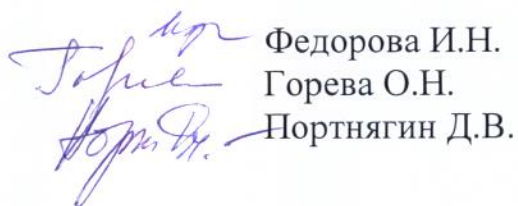 Федорова И.Н.
Горева О.Н.
Портнягин Д.В.